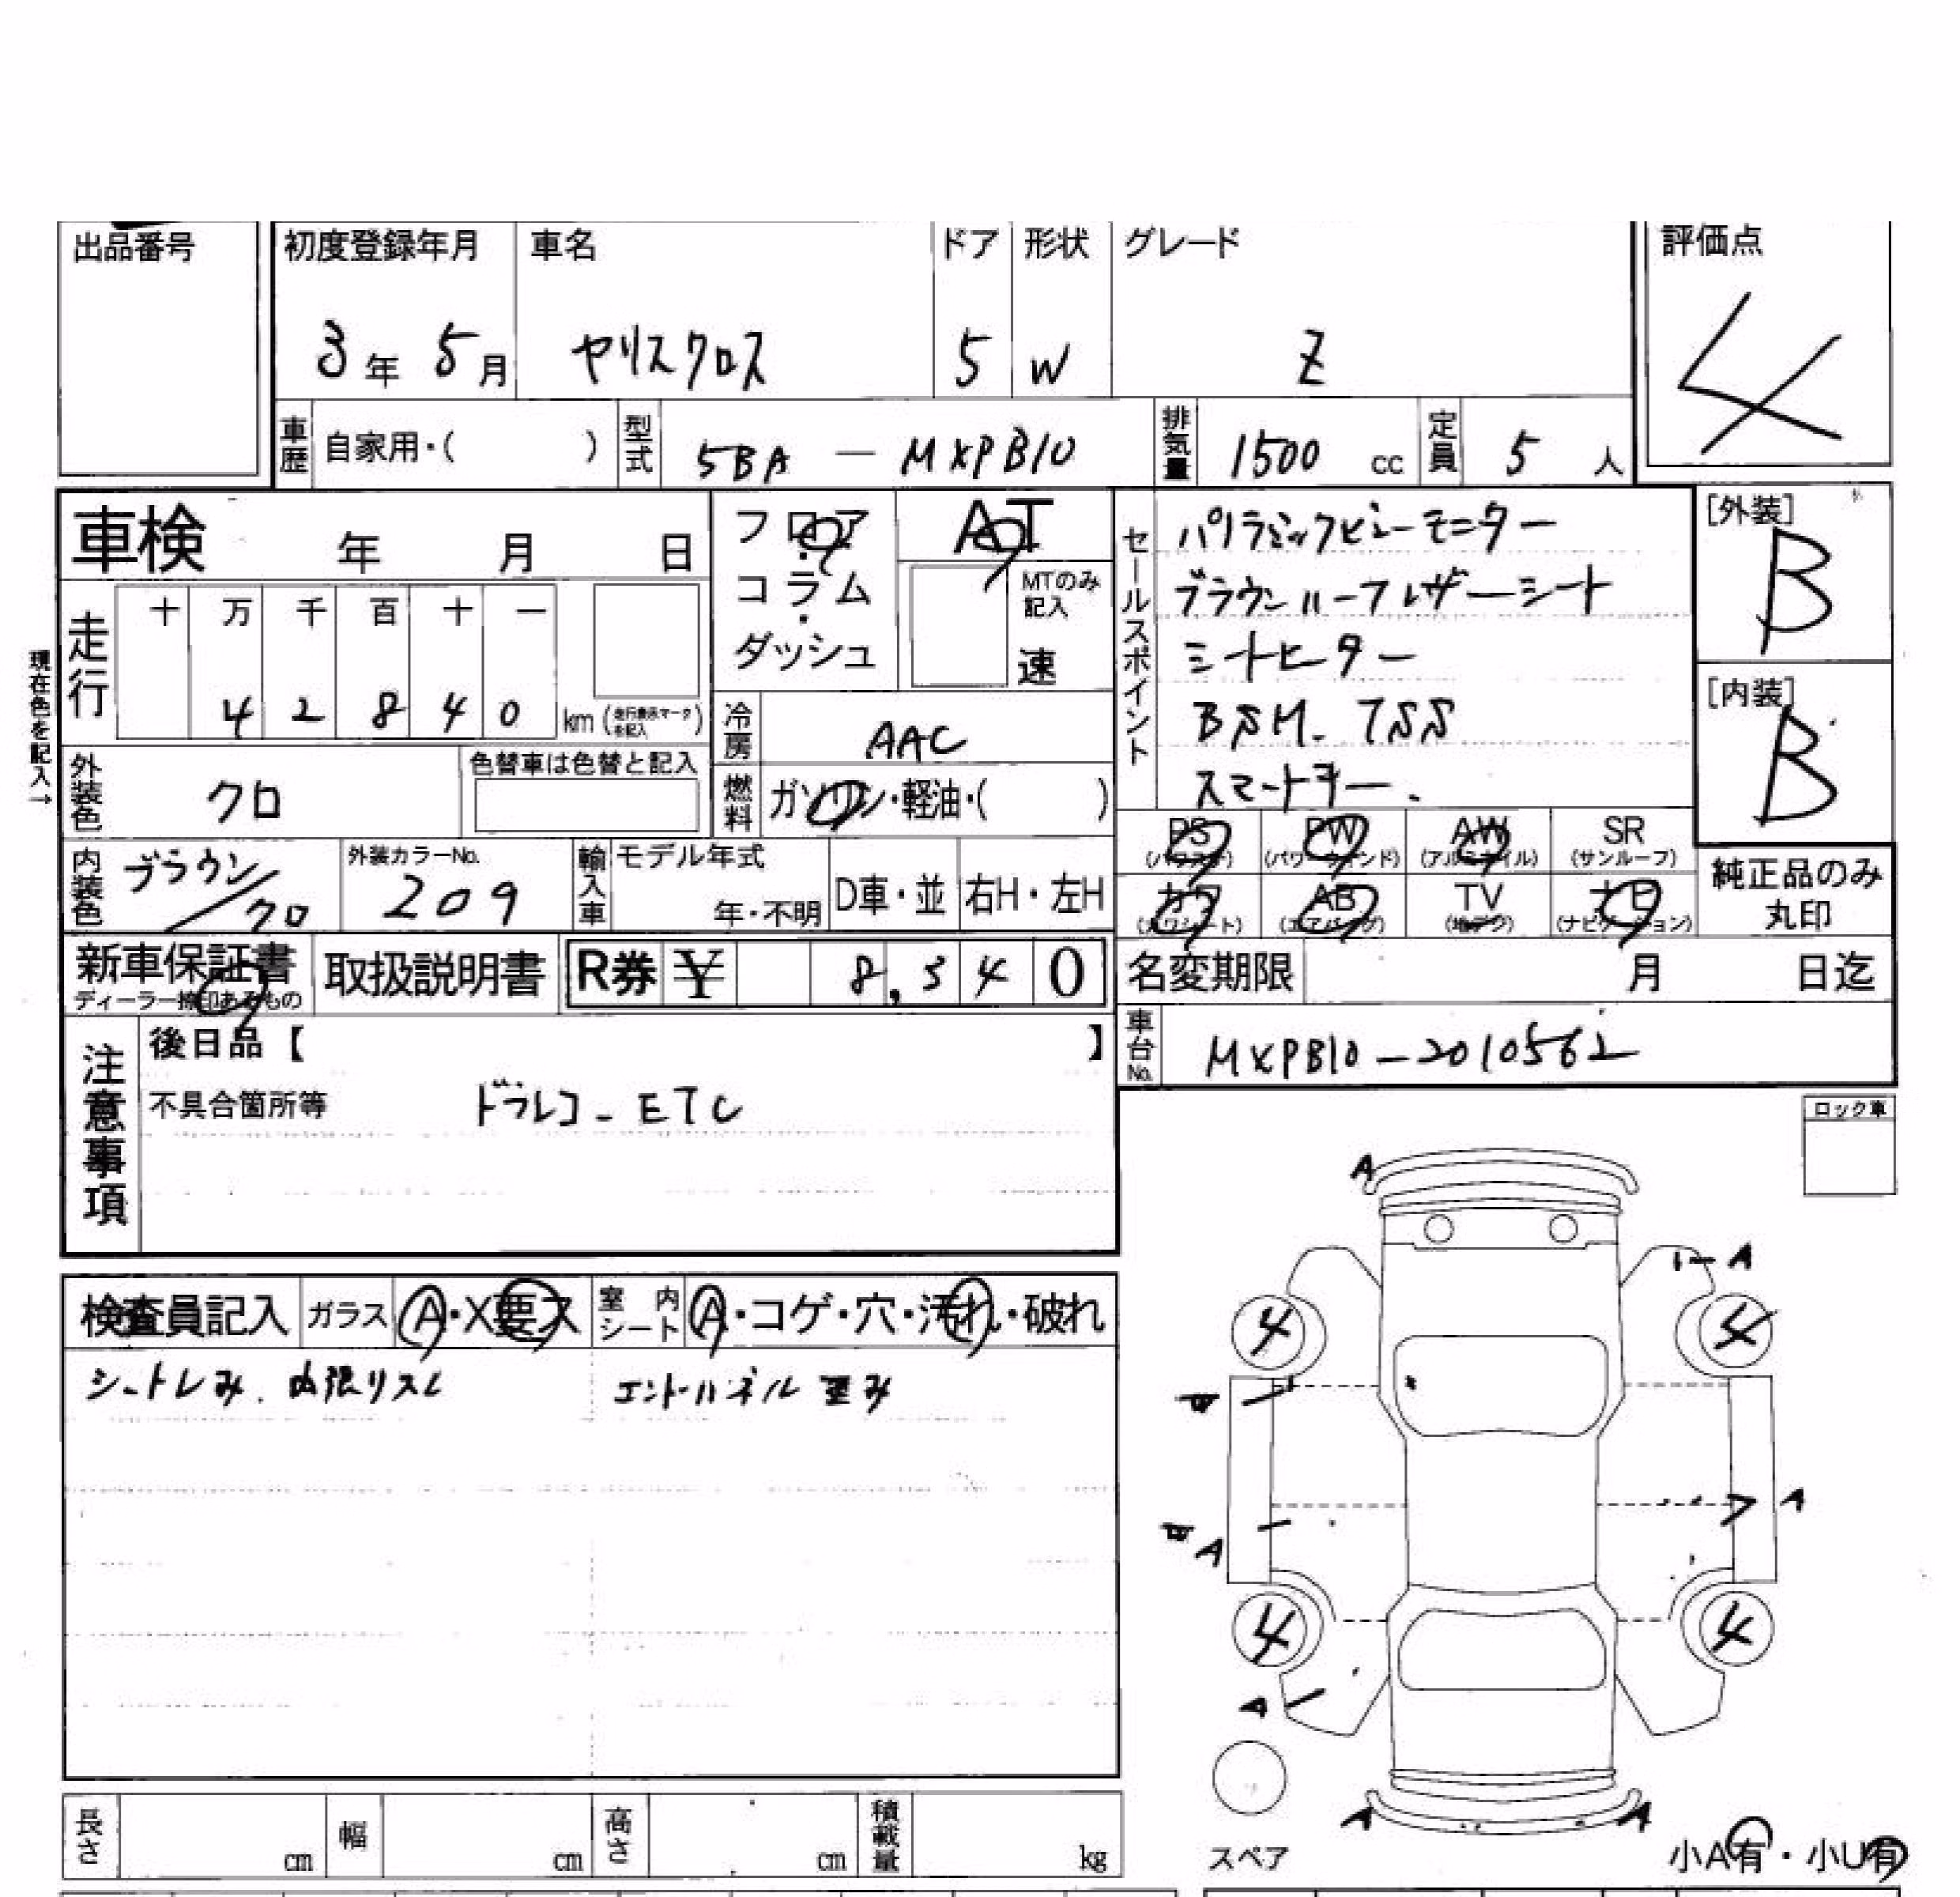 出品番号
初度登録年月 車名 ドア 形状 グレード 評価点
3年 5月 ヤリスクロス 5 W Z 4
車歴 自家用・( ) 型式 5BA — MXPB10 排気量 1500 cc 定員 5 人
車検 年 月 日
フロア・コラム・ダッシュ
AT
MTのみ記入
速
現在色を記入→
走行 十 万 千 百 十 一
4 2 8 4 0 km (走行表示マーク未記入)
冷房 AAC
燃料 ガソリン・軽油・( )
外装色 クロ 色替車は色替と記入
内装色 ブラウン/クロ 外装カラーNo. 209 輸入車 モデル年式 年・不明 D車・並 右H・左H
セールスポイント
パノラミックビューモニター
ブラウンハーフレザーシート
シートヒーター
BSM. TSS
スマートキー.
[外装] B
[内装] B
PS (パワステ) PW (パワーウィンド) AW (アルミホイル) SR (サンルーフ)
カワ (カワシート) AB (エアバッグ) TV (地デジ) ナビ (ナビゲーション)
純正品のみ丸印
新車保証書 ディーラー捺印あるもの 取扱説明書 R券 ¥ 8,540
名変期限 月 日迄
車台No. MXPB10-2010562
注意事項
後日品【 】
不具合箇所等 ドラレコ - ETC
ロック車
検査員記入 ガラス A・X要ス 室内シート A・コゲ・穴・汚れ・破れ
シートシミ. 内張りスレ エンドパネル歪み
A
A
4 4
A
A
4 4
A
A A
スペア
小A有・小U有
長さ cm 幅 cm 高さ cm 積載量 kg